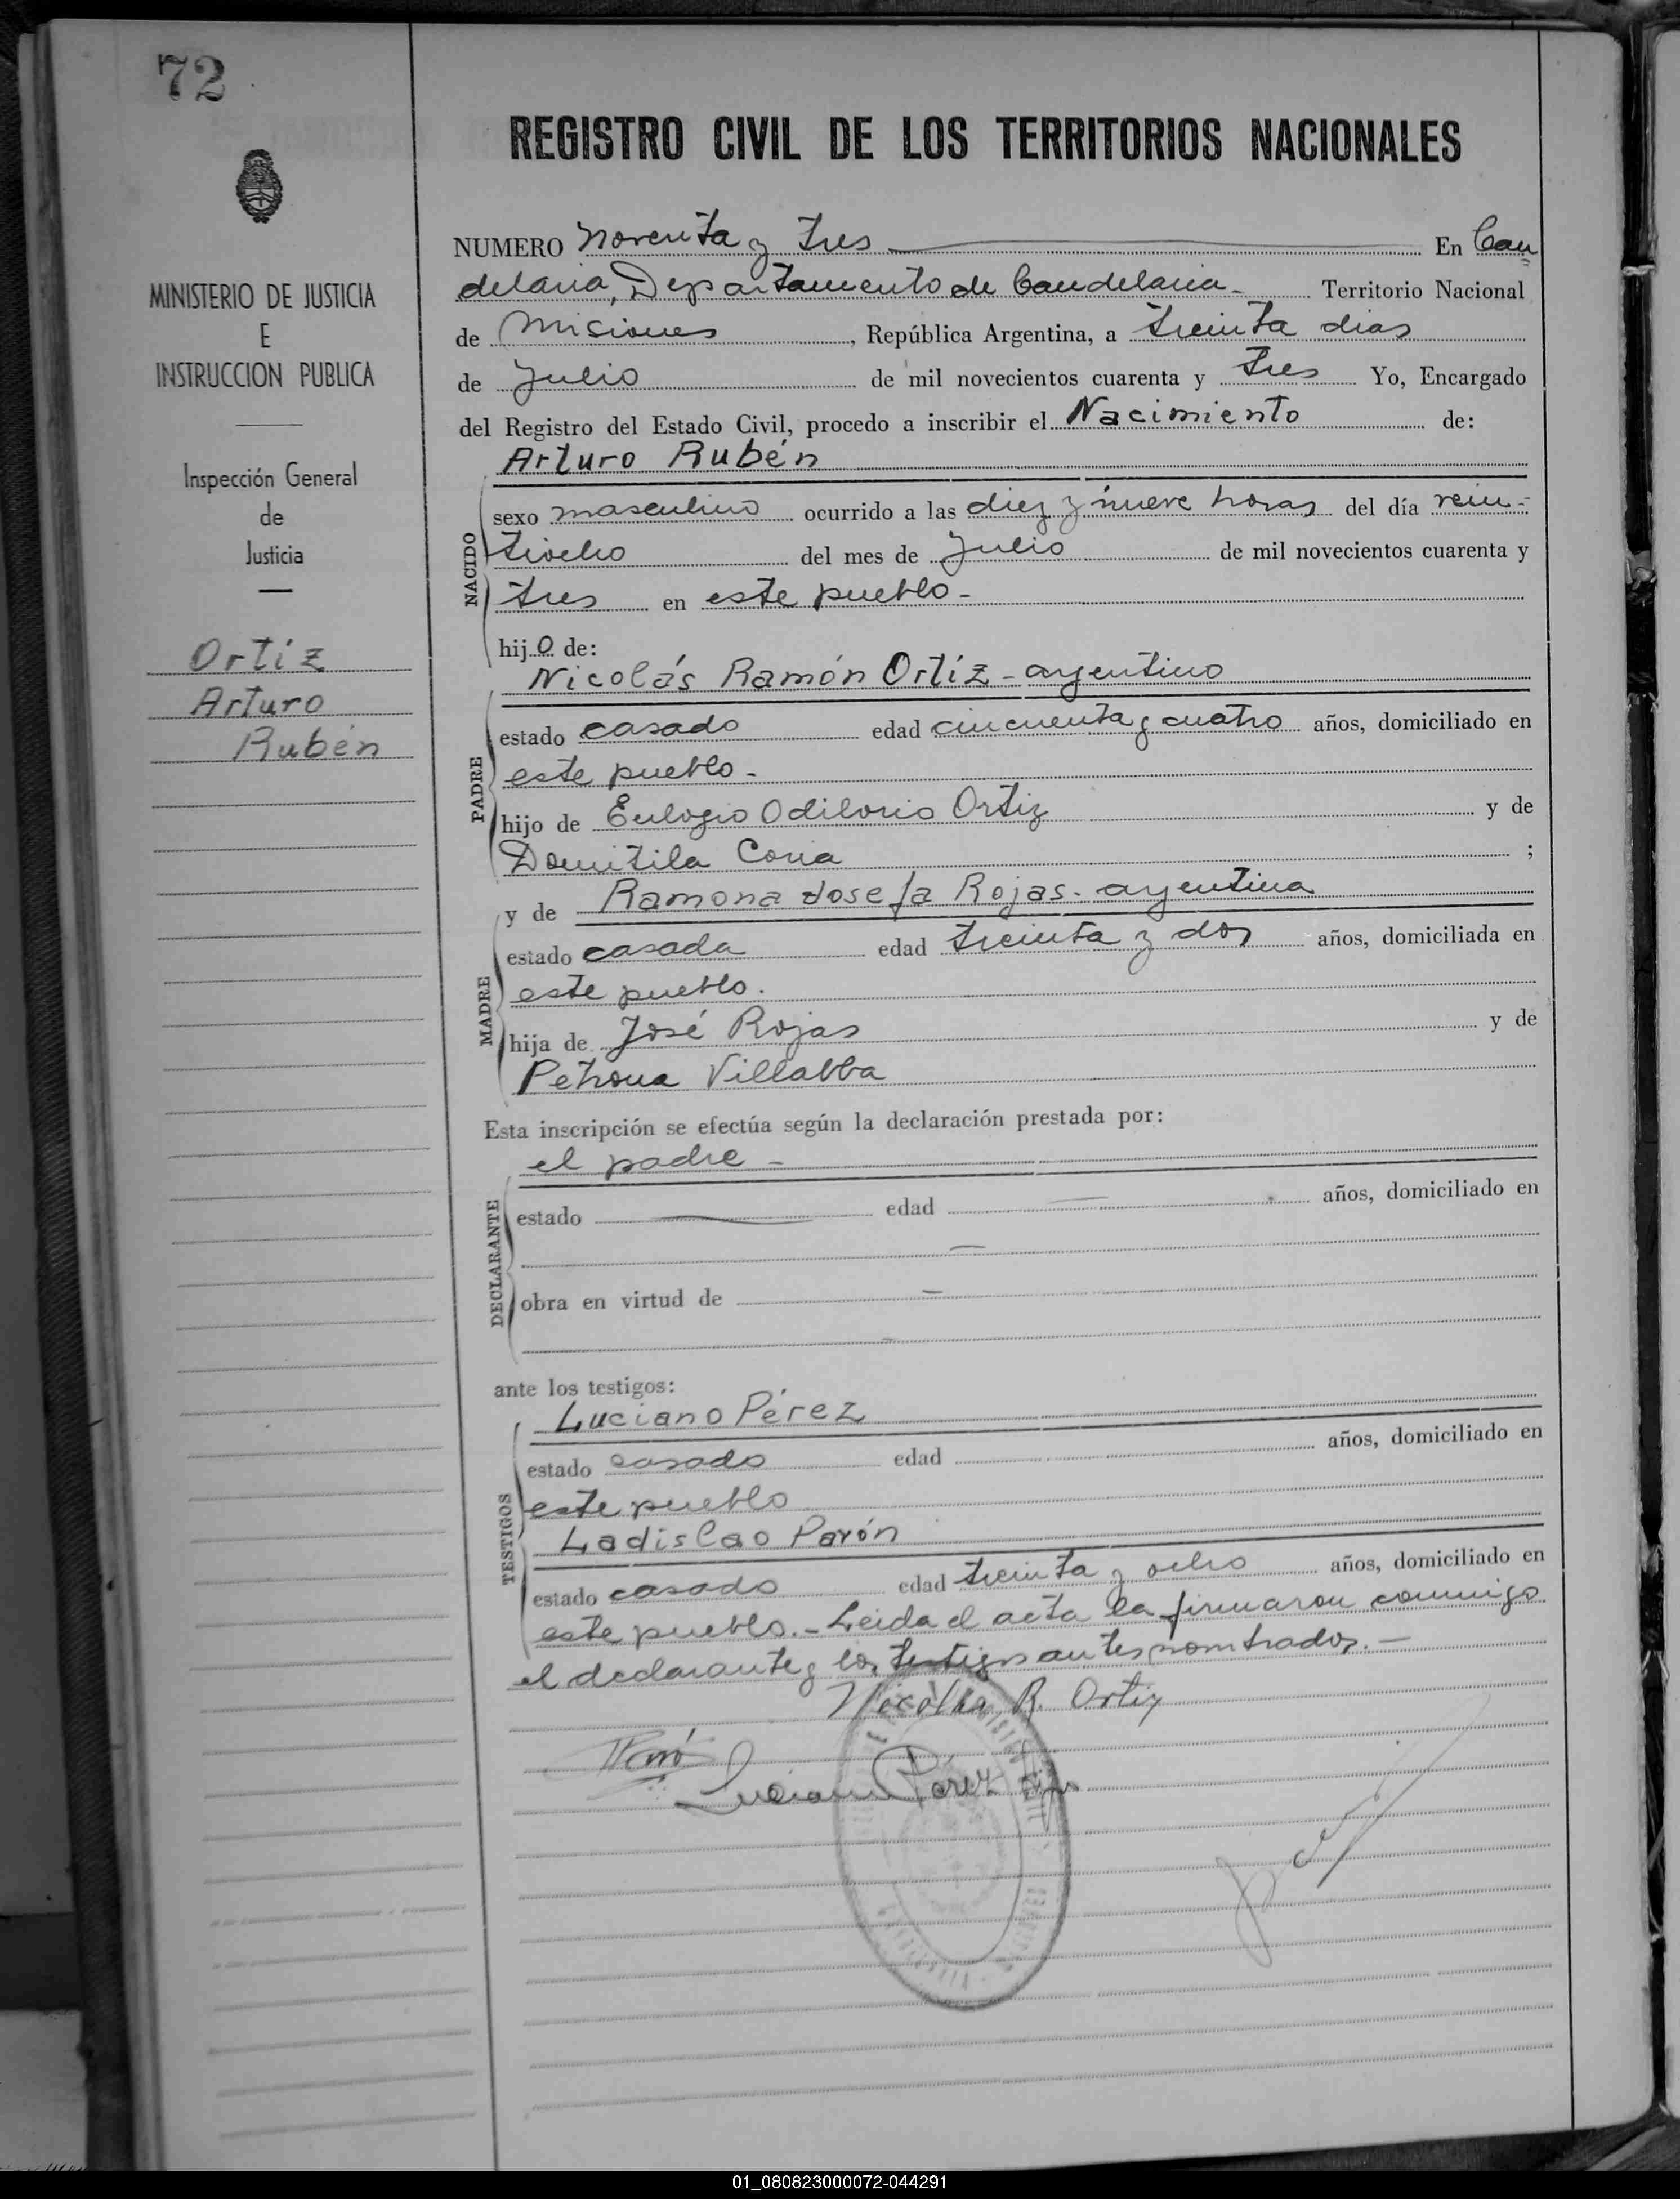 72
REGISTRO CIVIL DE LOS TERRITORIOS NACIONALES
MINISTERIO DE JUSTICIA
E
INSTRUCCION PUBLICA
Inspección General
de
Justicia
Ortíz
Arturo
Rubén
NUMERO noventa y tres En Can
delaria, Departamento de Candelaria Territorio Nacional
de Misiones, República Argentina, a treinta dias
de Julio de mil novecientos cuarenta y tres Yo, Encargado
del Registro del Estado Civil, procedo a inscribir el Nacimiento de:
Arturo Rubén
NACIDO
sexo masculino ocurrido a las diez y nueve horas del día vein-
tiocho del mes de Julio de mil novecientos cuarenta y
tres en este pueblo-
hijo de:
Nicolás Ramón Ortíz - argentino
PADRE
estado casado edad cincuenta y cuatro años, domiciliado en
este pueblo-
hijo de Eulogio Odilorio Ortiz y de
Domitila Coria ;
y de Ramona Josefa Rojas - argentina
MADRE
estado casada edad treinta y dos años, domiciliada en
este pueblo.
hija de José Rojas y de
Petrona Villalba
Esta inscripción se efectúa según la declaración prestada por:
el padre -
DECLARANTE
estado edad años, domiciliado en
obra en virtud de
ante los testigos:
Luciano Pérez
TESTIGOS
estado casado edad años, domiciliado en
este pueblo
Ladislao Pavón
estado casado edad treinta y ocho años, domiciliado en
este pueblo.- Leida el acta la firmaron conmigo
el declarante y los testigos antes nombrados.-
Nicolás R. Ortiz
Luciano Pérez
01_080823000072-044291